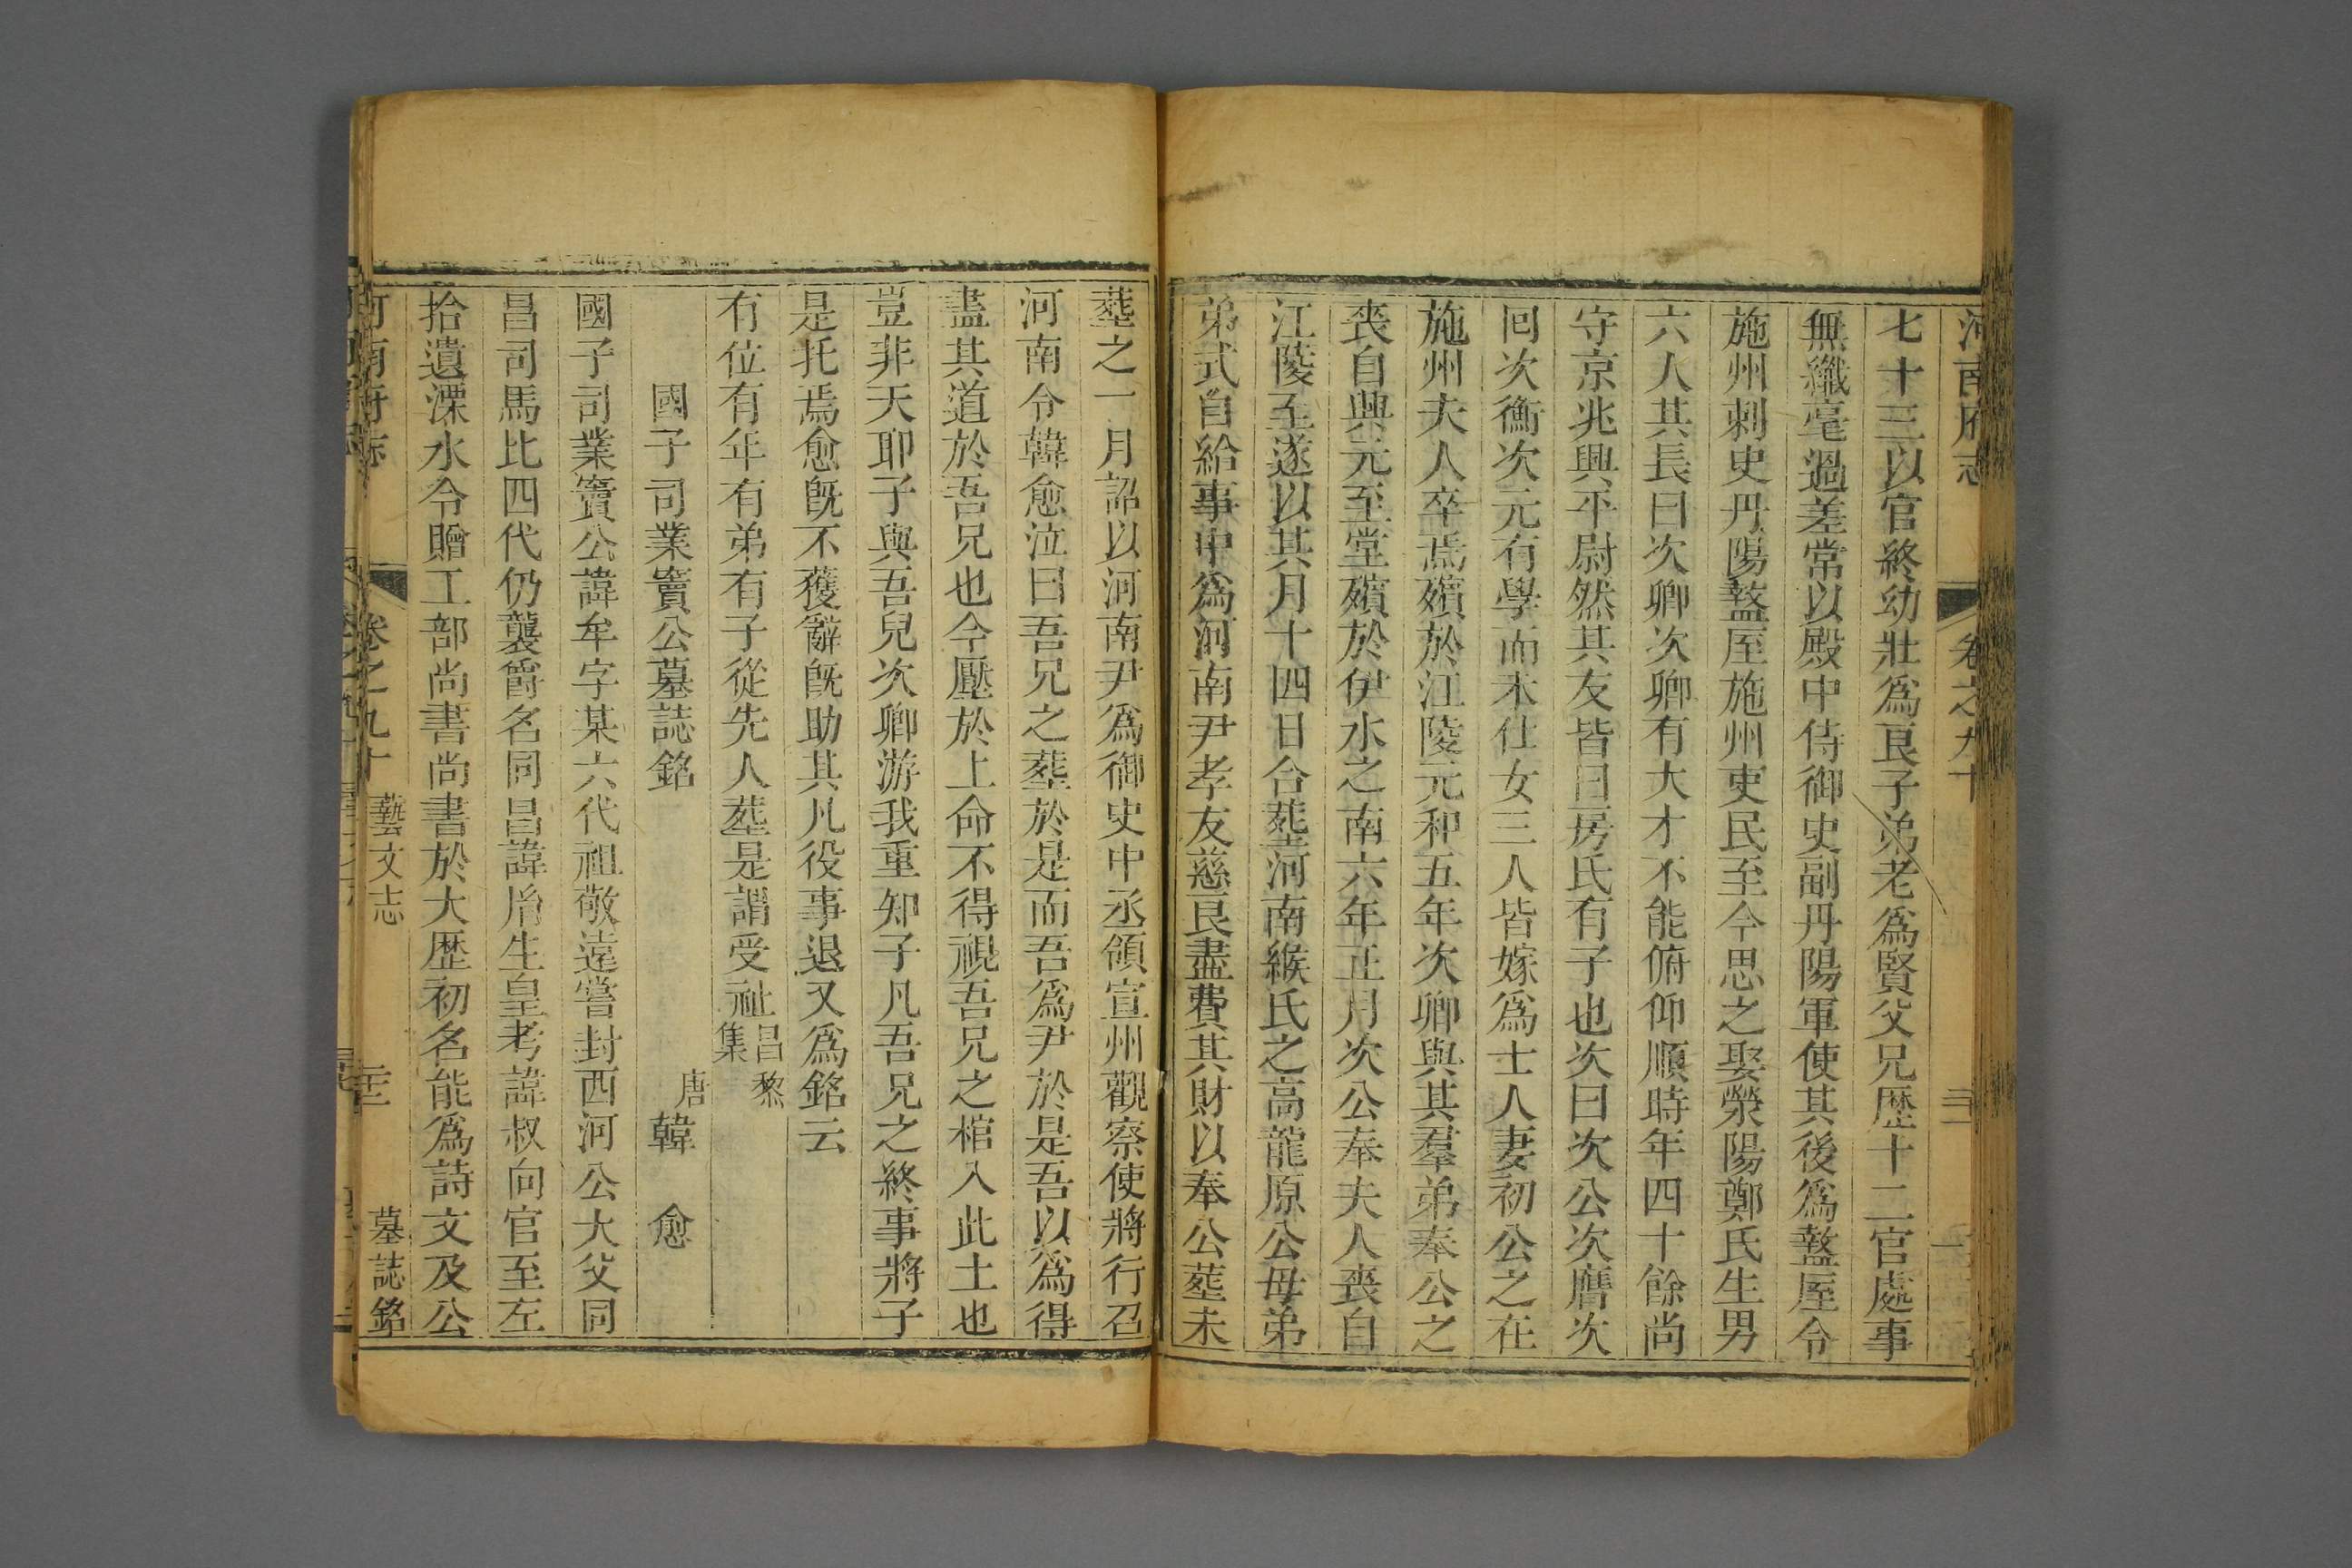 河南府志 卷之九十
七十三以官終幼壯爲良子弟老爲賢父兄歷十二官處事
無纖毫過差常以殿中侍御史副丹陽軍使其後爲盩厔令
施州刺史丹陽盩厔施州吏民至今思之娶滎陽鄭氏生男
六人其長曰次卿次卿有大才不能俯仰順時年四十餘尚
守京兆興平尉然其友皆曰房氏有子也次曰次公次膺次
回次衡次元有學而未仕女三人皆嫁爲士人妻初公之在
施州夫人卒焉殯於江陵元和五年次卿與其羣弟奉公之
喪自興元至堂殯於伊水之南六年正月次公奉夫人喪自
江陵至遂以其月十四日合塟河南緱氏之高龍原公母弟
弟式自給事中爲河南尹孝友慈良盡費其財以奉公塟未
塟之一月詔以河南尹爲御史中丞領宣州觀察使將行召
河南令韓愈泣曰吾兄之塟於是而吾爲尹於是吾以爲得
盡其道於吾兄也今壓於上命不得視吾兄之棺入此土也
豈非天耶子與吾兒次卿游我重知子凡吾兄之終事將子
是托焉愈旣不獲辭旣助其凡役事退又爲銘云
有位有年有弟有子從先人塟是謂受祉 昌黎集
國子司業竇公墓誌銘 唐 韓 愈
國子司業竇公諱牟字某六代祖敬遠嘗封西河公大父同
昌司馬比四代仍襲爵名同昌諱胤生皇考諱叔向官至左
拾遺溧水令贈工部尚書尚書於大歷初名能爲詩文及公
河南府志 卷之九十 藝文志 墓誌銘